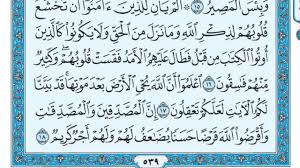 وَبِئْسَ الْمَصِيرُ ١٥ أَلَمْ يَأْنِ لِلَّذِينَ ءَامَنُوا أَن تَخْشَعَ
قُلُوبُهُمْ لِذِكْرِ اللَّهِ وَمَا نَزَلَ مِنَ الْحَقِّ وَلَا يَكُونُوا كَالَّذِينَ
أُوتُوا الْكِتَٰبَ مِن قَبْلُ فَطَالَ عَلَيْهِمُ الْأَمَدُ فَقَسَتْ قُلُوبُهُمْ وَكَثِيرٌ
مِّنْهُمْ فَٰسِقُونَ ١٦ اعْلَمُوا أَنَّ اللَّهَ يُحْيِ الْأَرْضَ بَعْدَ مَوْتِهَا قَدْ بَيَّنَّا
لَكُمُ الْآيَٰتِ لَعَلَّكُمْ تَعْقِلُونَ ١٧ إِنَّ الْمُصَّدِّقِينَ وَالْمُصَّدِّقَٰتِ
وَأَقْرَضُوا اللَّهَ قَرْضًا حَسَنًا يُضَٰعَفُ لَهُمْ وَلَهُمْ أَجْرٌ كَرِيمٌ ١٨
٥٣٩